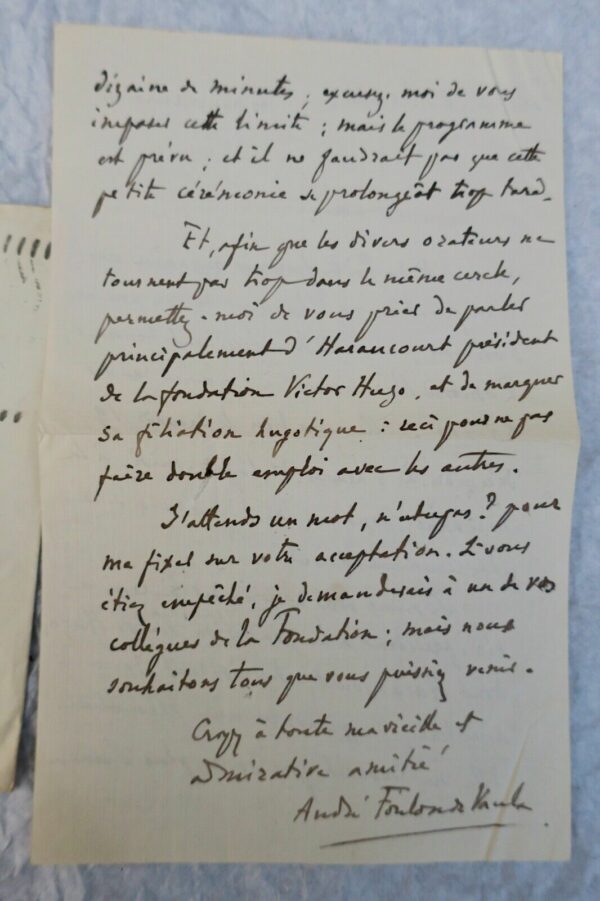 dizaine de minutes ; excusez-moi de vous
imposer cette limite ; mais le programme
est prévu ; et il ne faudrait pas que cette
petite cérémonie se prolongeât trop tard.
Et, afin que les divers orateurs ne
tournent pas trop dans le même cercle,
permettez-moi de vous prier de parler
principalement d'Haraucourt président
de la fondation Victor Hugo, et de marquer
sa filiation hugotique : ceci pour ne pas
faire double emploi avec les autres.
J'attends un mot, n'est-ce pas ? pour
me fixer sur votre acceptation. Si vous
étiez empêché, je demanderais à un de vos
collègues de la Fondation ; mais nous
souhaitons tous que vous puissiez venir.
Croyez à toute ma vieille et
admirative amitié
André Foulon de Vaulx